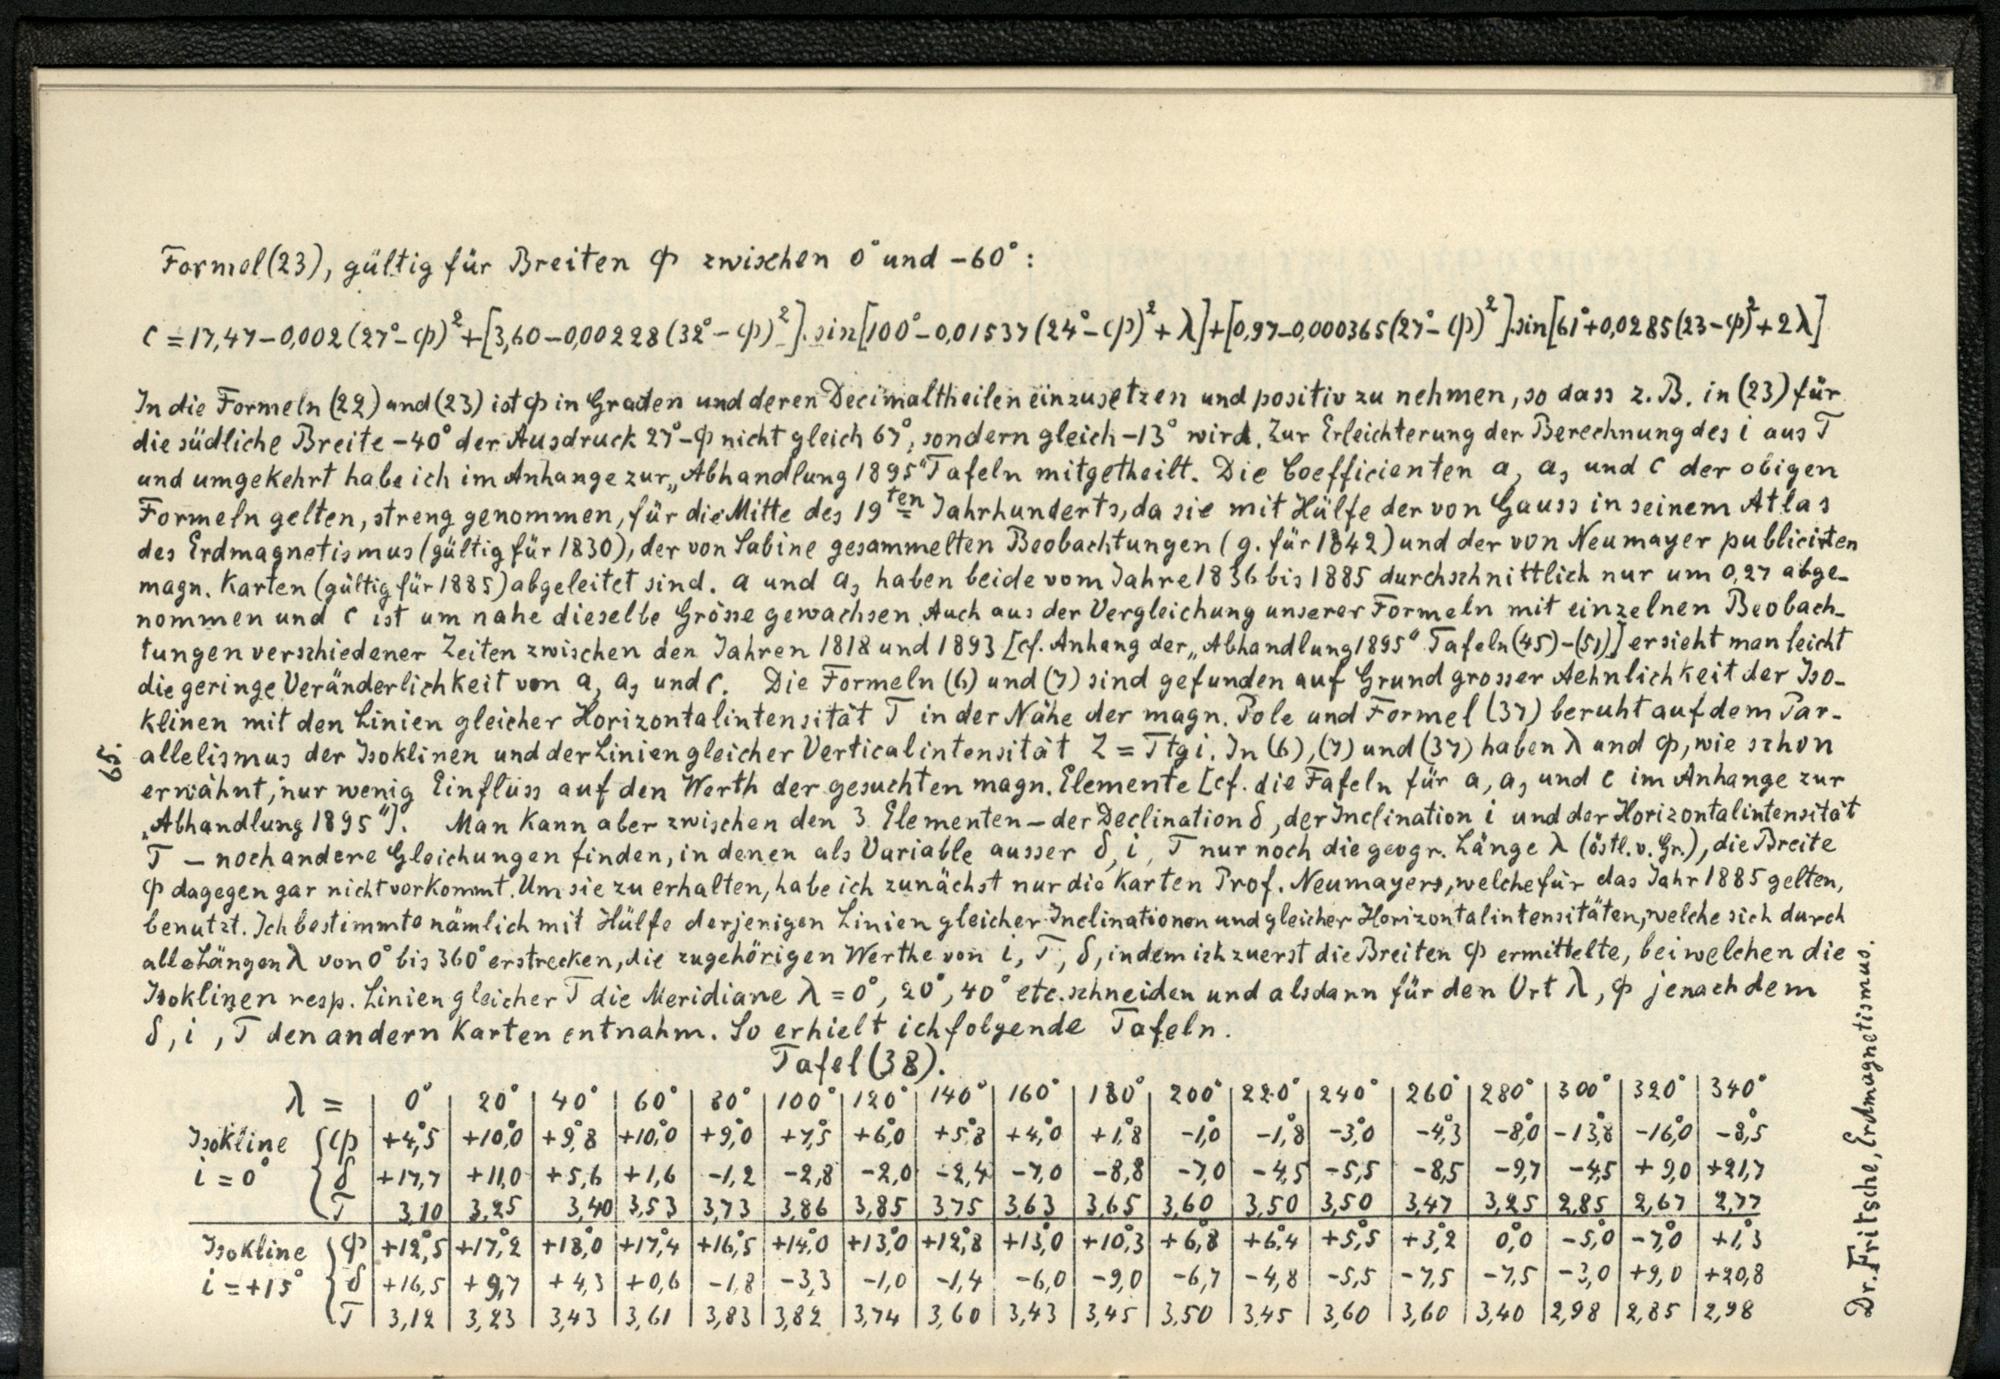 Formel (23), gültig für Breiten φ zwischen 0° und -60° :
c = 17,47 - 0,002 (27° - φ)² + [3,60 - 0,00228 (32° - φ)²]. sin [100° - 0,01537 (24° - φ)² + λ] + [0,97 - 0,000365 (27° - φ)²]. sin [61° + 0,0285 (23 - φ)² + 2λ]
In die Formeln (22) und (23) ist φ in Graden und deren Decimaltheilen einzusetzen und positiv zu nehmen, so dass z. B. in (23) für
die südliche Breite -40° der Ausdruck 27° - φ nicht gleich 67°, sondern gleich -13° wird. Zur Erleichterung der Berechnung des i aus T
und umgekehrt habe ich im Anhange zur „Abhandlung 1895“ Tafeln mitgetheilt. Die Coefficienten a, a, und c der obigen
Formeln gelten, streng genommen, für die Mitte des 19ten Jahrhunderts, da sie mit Hülfe der von Gauss in seinem Atlas
des Erdmagnetismus (gültig für 1830), der von Sabine gesammelten Beobachtungen (g. für 1842) und der von Neumayer publicirten
magn. Karten (gültig für 1885) abgeleitet sind. a und a, haben beide vom Jahre 1836 bis 1885 durchschnittlich nur um 0,27 abge-
nommen und c ist um nahe dieselbe Grösse gewachsen. Auch aus der Vergleichung unserer Formeln mit einzelnen Beobach-
tungen verschiedener Zeiten zwischen den Jahren 1818 und 1893 [cf. Anhang der „Abhandlung 1895“ Tafeln (45) - (51)] ersieht man leicht
die geringe Veränderlichkeit von a, a, und c. Die Formeln (6) und (7) sind gefunden auf Grund grosser Aehnlichkeit der Iso-
klinen mit den Linien gleicher Horizontalintensität T in der Nähe der magn. Pole und Formel (37) beruht auf dem Par-
allelismus der Isoklinen und der Linien gleicher Verticalintensität Z = T tg i. In (6), (7) und (37) haben λ und φ, wie schon
erwähnt, nur wenig Einfluss auf den Werth der gesuchten magn. Elemente [cf. die Tafeln für a, a, und c im Anhange zur
„Abhandlung 1895“]. Man kann aber zwischen den 3 Elementen - der Declination δ, der Inclination i und der Horizontalintensität
T - noch andere Gleichungen finden, in denen als Variable ausser δ, i, T nur noch die geogr. Länge λ (östl. v. Gr.), die Breite
φ dagegen gar nicht vorkommt. Um sie zu erhalten, habe ich zunächst nur die Karten Prof. Neumayers, welche für das Jahr 1885 gelten,
benutzt. Ich bestimmte nämlich mit Hülfe derjenigen Linien gleicher Inclinationen und gleicher Horizontalintensitäten, welche sich durch
alle Längen λ von 0° bis 360° erstrecken, die zugehörigen Werthe von i, T, δ, indem ich zuerst die Breiten φ ermittelte, bei welchen die
Isoklinen resp. Linien gleicher T die Meridiane λ = 0°, 20°, 40° etc. schneiden und alsdann für den Ort λ, φ je nachdem
δ, i, T den andern Karten entnahm. So erhielt ich folgende Tafeln.
Tafel (38).
λ = 0° 20° 40° 60° 80° 100° 120° 140° 160° 180° 200° 220° 240° 260° 280° 300° 320° 340°
Isokline φ +4°,5 +10°,0 +9°,8 +10°,0 +9°,0 +7°,5 +6°,0 +5°,8 +4°,0 +1°,8 -1°,0 -1°,8 -3°,0 -4°,3 -8°,0 -13°,8 -16°,0 -8°,5
i = 0° δ +17,7 +11,0 +5,6 +1,6 -1,2 -2,8 -2,0 -2,4 -7,0 -8,8 -7,0 -4,5 -5,5 -8,5 -9,7 -4,5 +9,0 +21,7
T 3,10 3,25 3,40 3,53 3,73 3,86 3,85 3,75 3,63 3,65 3,60 3,50 3,50 3,47 3,25 2,85 2,67 2,77
Isokline φ +12°,5 +17°,2 +18°,0 +17°,4 +16°,5 +14°,0 +13°,0 +12°,8 +13°,0 +10°,3 +6°,8 +6°,4 +5°,5 +3°,2 0°,0 -5°,0 -7°,0 +1°,3
i = +15° δ +16,5 +9,7 +4,3 +0,6 -1,8 -3,3 -1,0 -1,4 -6,0 -9,0 -6,7 -4,8 -5,5 -7,5 -7,5 -3,0 +9,0 +20,8
T 3,12 3,23 3,43 3,61 3,83 3,82 3,74 3,60 3,43 3,45 3,50 3,45 3,60 3,60 3,40 2,98 2,85 2,98
65.
Dr. Fritsche, Erdmagnetismus.